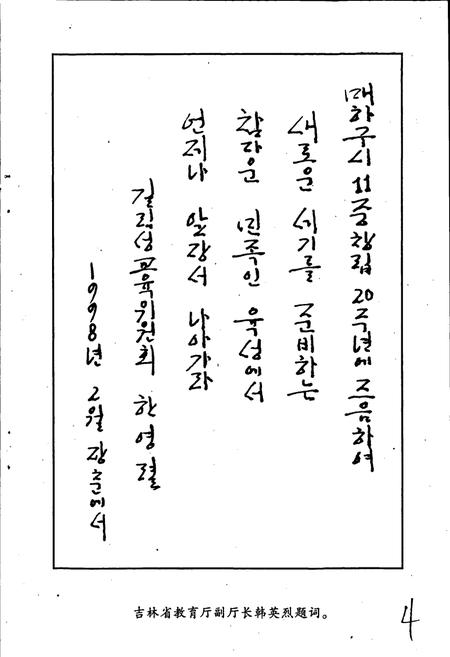 매하구시 중창립 20주년에 즈음하여
새로운 세기를 준비하는
참다운 민족인 육성에서
언제나 앞장서 나아가라
길림성교육위원회 한영렬
1998년 2월 장춘에서
吉林省教育厅副厅长韩英烈题词。
4